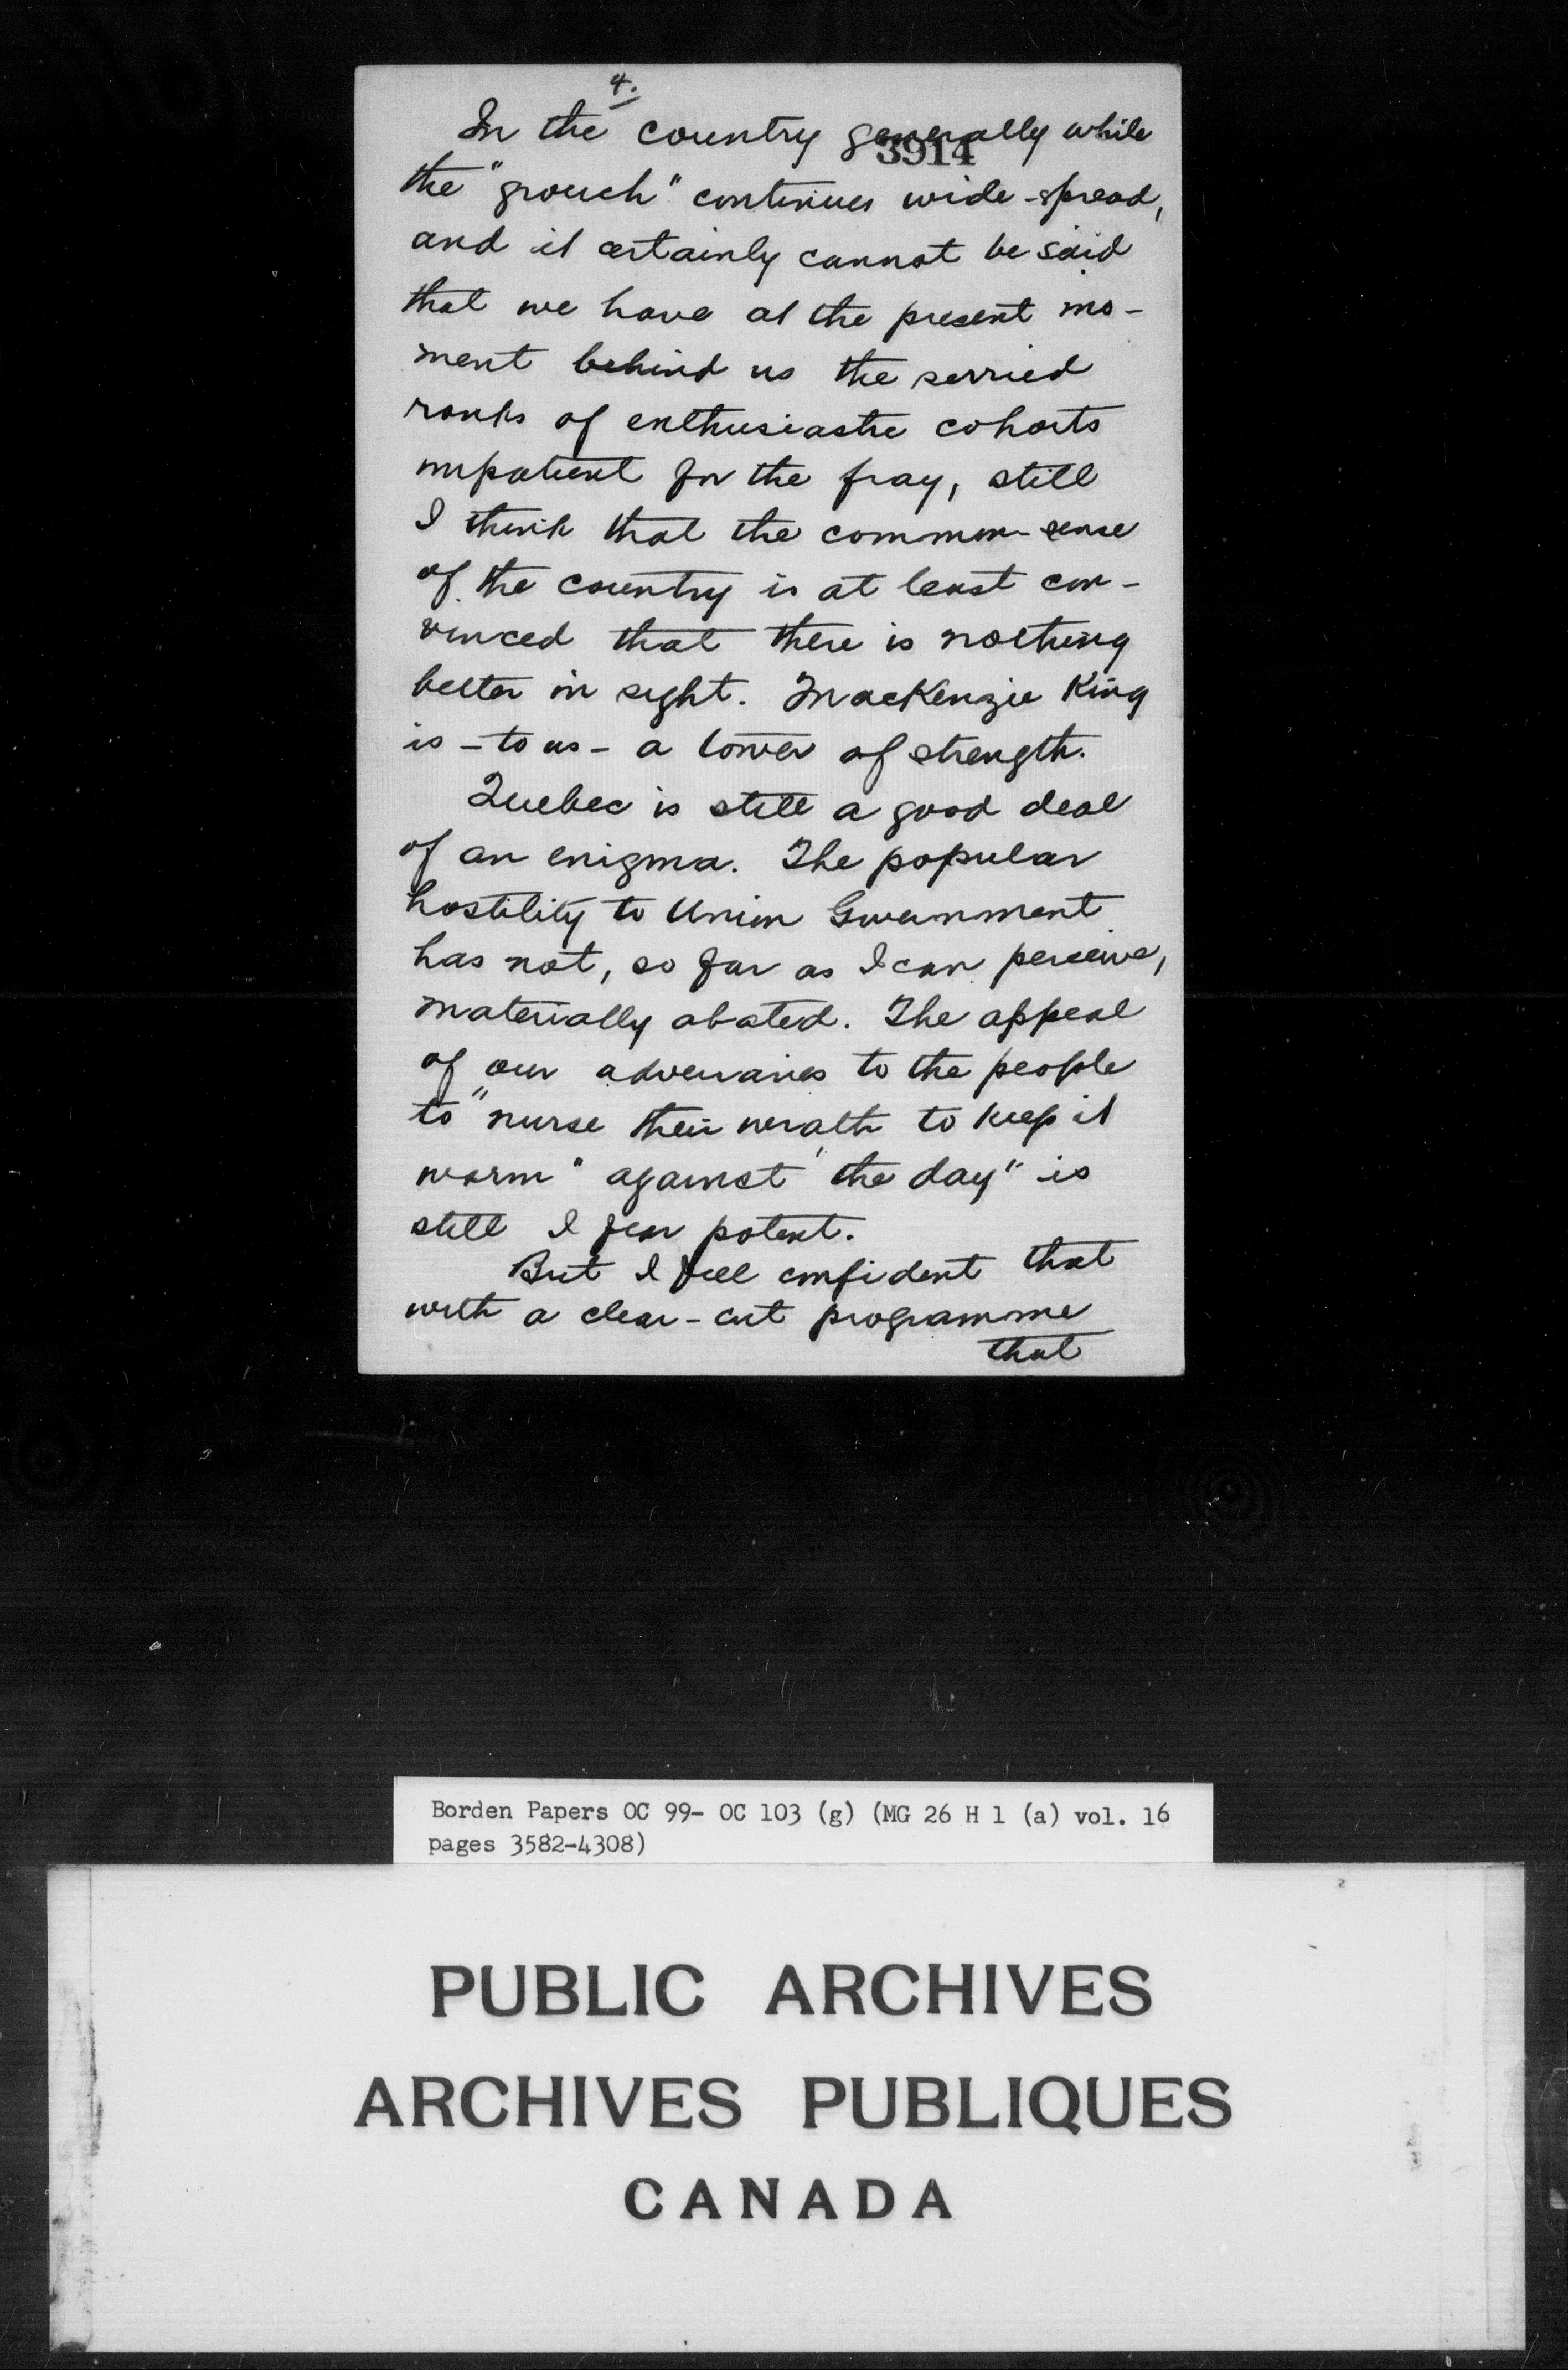 4.
In the country generally while
3914
the "grouch" continues wide-spread,
and it certainly cannot be said
that we have at the present mo-
ment behind us the serried
ranks of enthusiastic cohorts
impatient for the fray, still
I think that the common-sense
of the country is at least con-
vinced that there is nothing
better in sight. MacKenzie King
is - to us - a tower of strength.
Quebec is still a good deal
of an enigma. The popular
hostility to Union Government
has not, so far as I can perceive,
materially abated. The appeal
of our adversaries to the people
to "nurse their wrath to keep it
warm" against "the day" is
still I fear potent.
But I feel confident that
with a clear-cut programme
that
Borden Papers OC 99- OC 103 (g) (MG 26 H 1 (a) vol. 16
pages 3582-4308)
PUBLIC ARCHIVES
ARCHIVES PUBLIQUES
CANADA